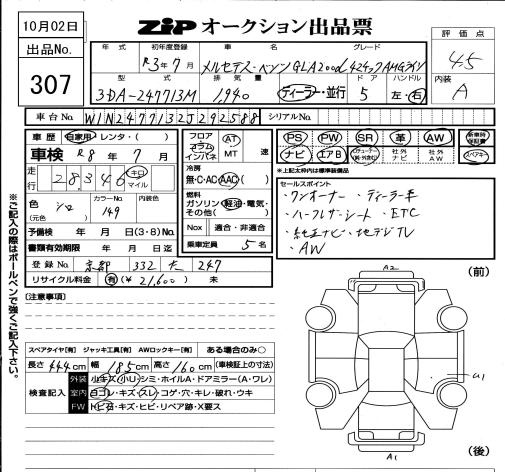 10月02日
ZIP オークション出品票
出品No.
307
評価点
4.5
内装
A
年式 初年度登録 車名 グレード
R3年7月 メルセデス・ベンツ GLA200d 4マチック AMGライン
型式 排気量 ドア ハンドル
3DA-247713M 1,940 ディーラー・並行 5 左・右
車台No. W1N2477132J292588 シリアルNo.
車歴 自家用・レンタ・( )
車検 R8年7月
走行 28,346 キロ マイル
色 シロ (元色) カラーNo. 149 内装色
予備検 年 月 日(3・8)No.
書類有効期限 年 月 日迄
登録No. 京都 332 247
リサイクル料金 有(¥21,600) 未
フロア コラム インパネ AT MT 速
冷房 無・C・AC・AAC
燃料 ガソリン・軽油・電気・その他( )
Nox 適合・非適合
乗車定員 5名
PS PW SR 革 AW 新車時保証書
ナビ エアB 社外ナビ 社外AW スペアキー
*上記太枠内は標準装備品
セールスポイント
・ワンオーナー ・ディーラー車
・ハーフレザーシート ・ETC
・純正ナビ・地デジTV
・AW
※ご記入の際はボールペンで強くご記入下さい。
(注意事項)
スペアタイヤ[有] ジャッキ工具[有] AWロックキー[有] ある場合のみ○
長さ 444cm 幅 185cm 高さ 160cm (車検証上の寸法)
検査記入
外装 小キズ・小凹・シミ・ホイルA・ドアミラー(A・ワレ)
室内 白コレ・キズ・スレ・コゲ・穴・キレ・破れ・ウキ
FW トビ石・キズ・ヒビ・リペア跡・X要ス
(前)
A2
U1
A1
(後)